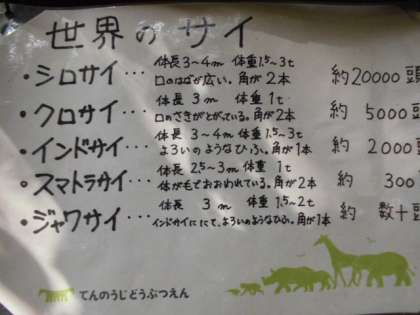 世界のサイ
・シロサイ… 体長3~4m 体重1.5~3t
口のはばが広い。角が2本 約20000頭
・クロサイ… 体長 3m 体重 1t
口のさきがとがっている。角が2本 約 5000頭
・インドサイ… 体長 3~4m 体重1.5~3t
よろいのようなひふ。角が1本 約 2000頭
・スマトラサイ… 体長 2.5~3m 体重 1t
体が毛でおおわれている。角が2本 約 300
・ジャワサイ… 体長 3m 体重 1.5~2t
インドサイににて、よろいのようなひふ。角が1本 約 数十頭
てんのうじどうぶつえん